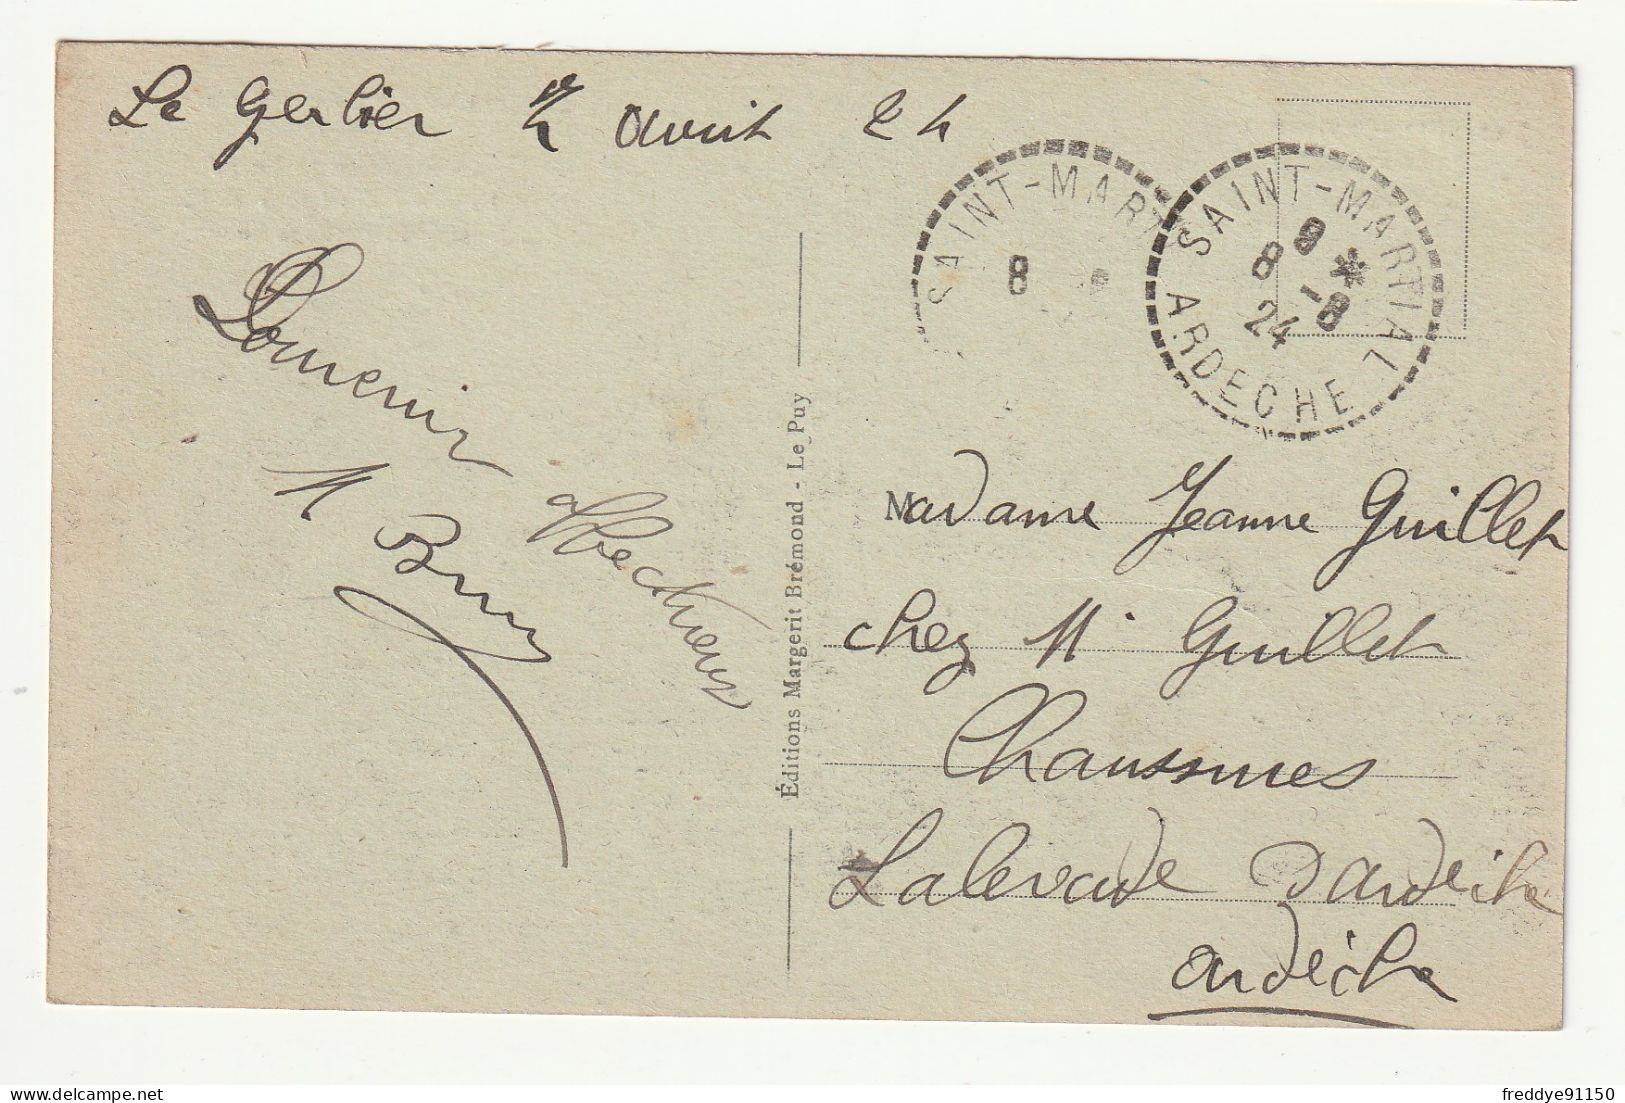 Le Gerbier 7 Aout 24
Souvenir affectueux
M Brun
Éditions Margerit Brémond - Le Puy
SAINT-MART
8
SAINT-MARTIAL
8 *
8 -8
24
ARDECHE
Madame Jeanne Guillet
chez M. Guillet
Chaussures
Lalevade d'Ardèche
Ardèche
freddye91150